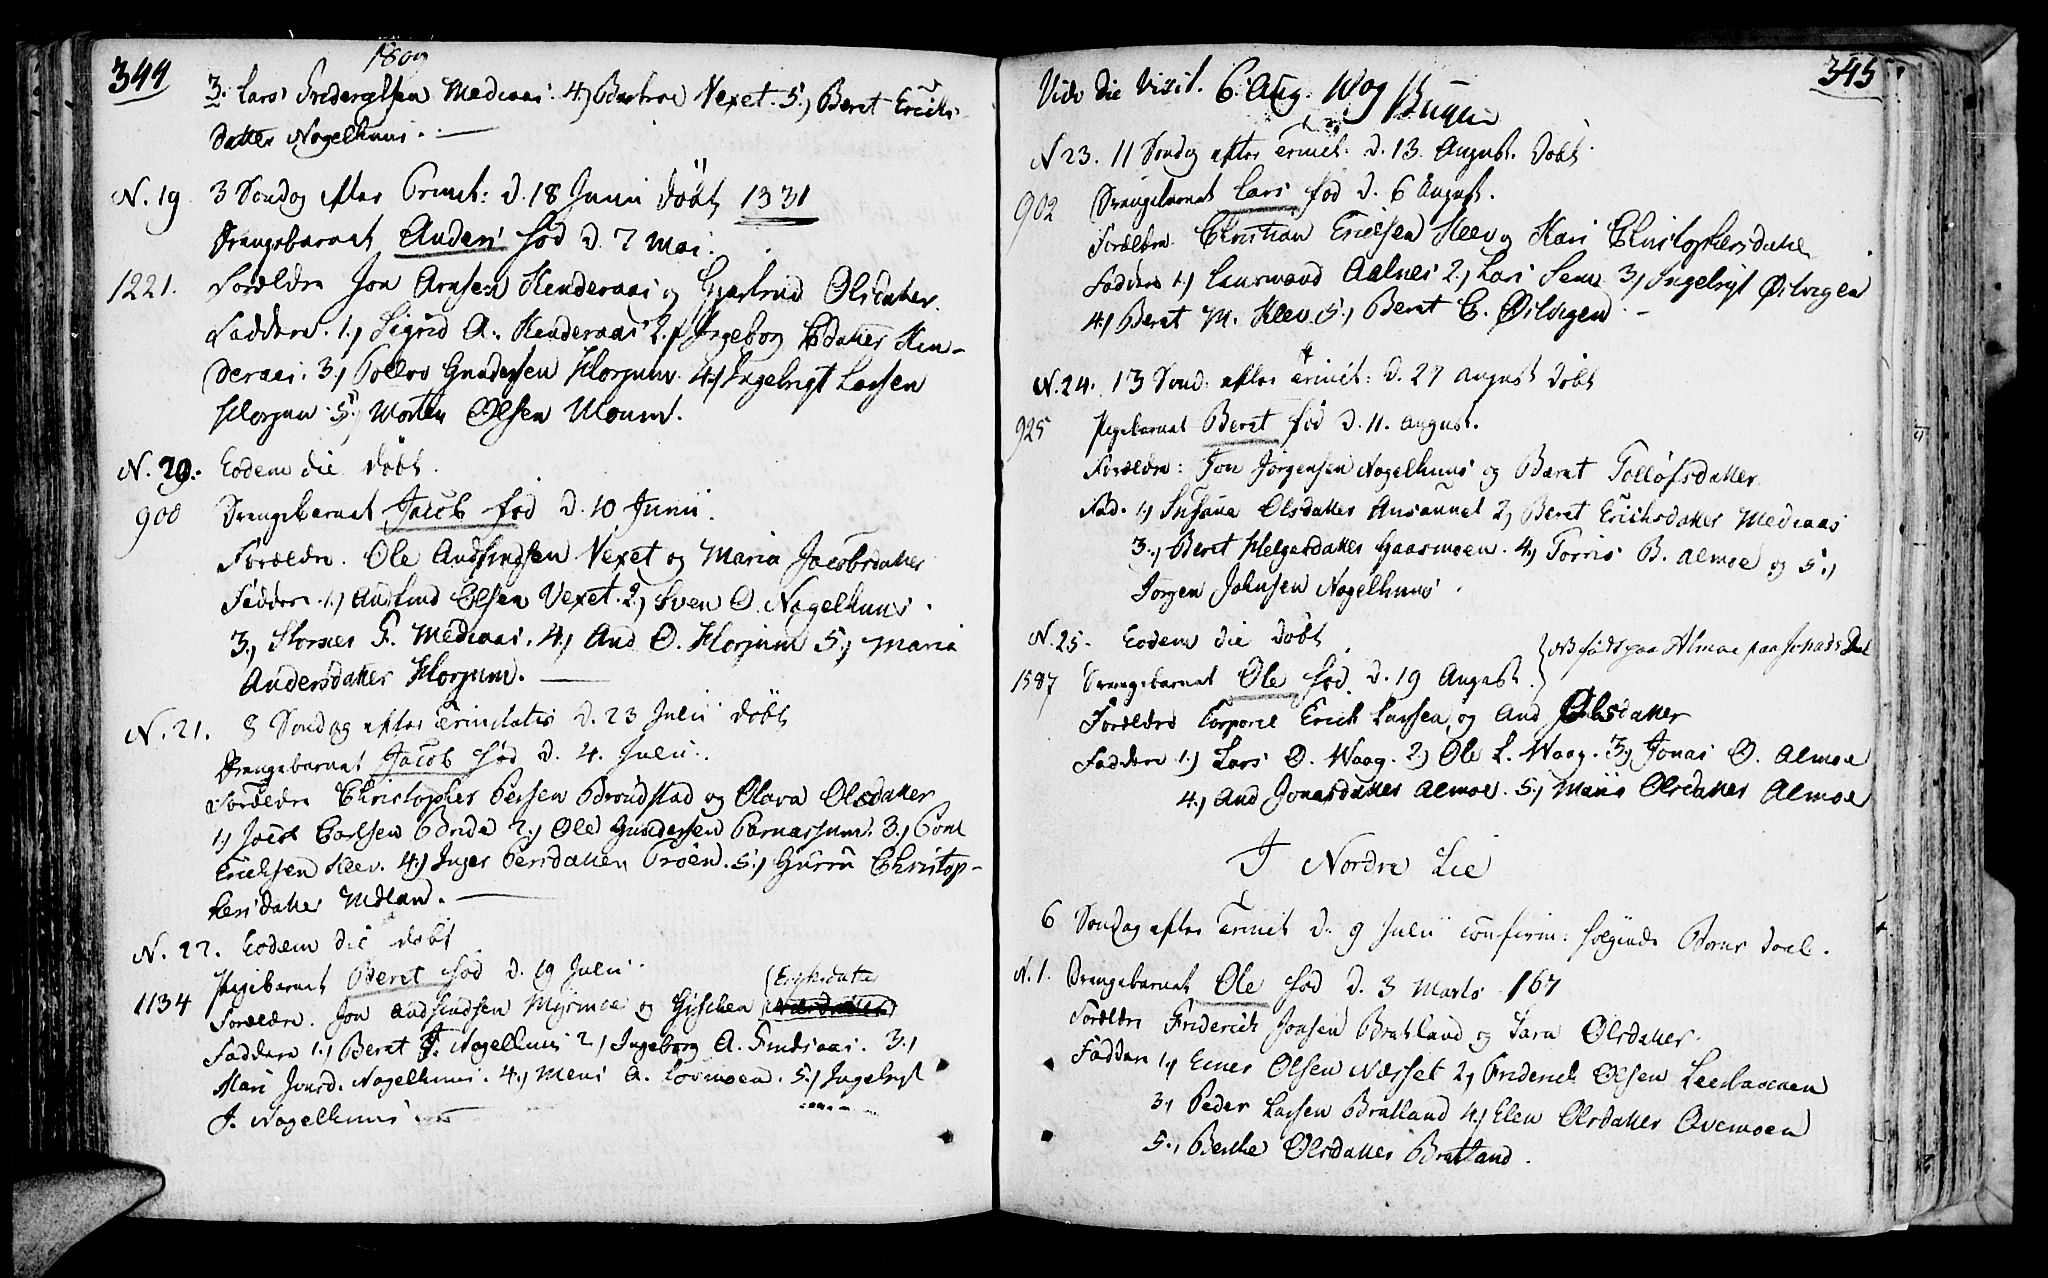 344
1809
3. Lars Friderichsen Mediaas. 4.) Bastroe Vexet. 5.) Beret Erichs-
datter Nagelhuus.
N. 19 3 Søndag efter Trinit: d. 18 Junii døbt 1331
Drengebarnet Anders fød d. 7 Mai.
1221. Forældre Jon Arnsen Kenderaas og Gjertrud Olsdatter.
Faddere. 1.) Sigrid A. Kenderaas 2.) Ingeborg Esdatter Ken-
deraas. 3.) Tollev Gundersen Florjum. 4.) Ingebrigt Larsen
Florjum. 5.) Morten Olsen Moum.
N. 20. Eodem die døbt.
900 Drengebarnet Jacob fød d. 10 Junii.
Forældre. Ole Andfindsen Vexet og Maria Jacobsdatter
Faddere. 1.) Andfind Olsen Vexet. 2.) Sven O. Nagelhuus.
3.) F. Mediaas. 4.) And O. Florjum 5.) Maria
Andersdatter Florjum.
N. 21. 8 Søndag efter Trinitatis d. 23 Julii døbt
Drengebarnet Jacob fød d. 4. Julii.
Forældre Christopher Persen Brøndstad og Olava Olsdatter
1.) Jacob Carlsen Brede 2.) Ole Gundersen Parnassum. 3.)
Erichsen Klev. 4.) Inger Persdatter Trøen. 5.) Gurru Christop-
hersdatter Midland.
N. 22. Eodem die døbt
Pigebarnet Beret fød d. 19 Julii.
1134 Forældre. Jon Andfindsen Myrmoe og Gjischen (Erichsdatter
Faddere 1.) Beret J. Nagelhuus 2.) Ingeborg A. Findsaas. 3.)
Mari Jonsd. Nagelhuus. 4.) Mens A. Lovmoen. 5.) Ingebrigt
J. Nagelhuus
345
Vide die Visit. 6. Aug. Bugge
N 23. 11 Søndag efter Trinit: d. 13. August. døbt
902 Drengebarnet Lars fød d. 6 August.
Forældre. Christian Ericksen Klev og Kari Christophersdatter
Faddere 1.) Laurmand Aalnes 2.) Lars Sem 3.) Ingebrigt Øilvigen
4.) Beret M. Klev. 5.) Beret C. Øilvigen.
N. 24. 13 Sønd: efter Trinit: d. 27 August døbt
925 Pigebarnet Beret fød d. 11. August.
Forældre: Jon Jørgensen Nagelhuus og Beret Tollofsdatter
Fad. 1.) Susana Olsdatter 2.) Beret Erichsdatter Mediaas
3.) Beret Helgesdatter Gaasmoen. 4.) Torris B. Almoe og 5.)
Jørgen Johnsen Nagelhuus.
N. 25. Eodem die døbt
1587 Drengebarnet Ole fød d. 19 August. {NB født paa Almoe
Forældre Corporal Erich Larsen og And Olsdatter
Faddere 1.) Lars O. Waag. 2.) Ole L. Waag. 3.) Jonas O. Almoe
4.) And Jonasdatter Almoe. 5.) Olsdatter Almoe
I Nordre Lie
6 Søndag efter Trinit d. 9 Julii confirm: følgende Børns Daab.
N. 1. Drengebarnet Ole fød d. 3 Marts 167
Forældre Friderich Jonsen Bratland og Sara Olsdatter.
Faddere 1.) Einer Olsen Næsset 2.) Friderich Olsen Leerbakken
3.) Peder Larsen Bratland 4.) Elen Olsdatter Qvemoen
5.) Berthe Olsdatter Bratland.